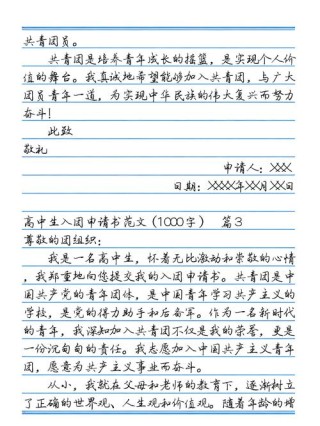 共青团员。
共青团是培养青年成长的摇篮，是实现个人价
值的舞台。我真诚地希望能够加入共青团，与广大
团员青年一道，为实现中华民族的伟大复兴而努力
奋斗！
此致
敬礼
申请人：XXX
日期：XXXX年XX月XX日
高中生入团申请书范文（1000字） 篇3
尊敬的团组织：
我是一名高中生，怀着无比激动和崇敬的心情
，我郑重地向您提交我的入团申请书。共青团是中
国共产党的青年团体，是中国青年学习共产主义的
学校，是党的得力助手和后备军。作为一名新时代
的青年，我深知加入共青团不仅是我的荣誉，更是
一份沉甸甸的责任。我志愿加入中国共产主义青年
团，愿意为共产主义事业而奋斗。
从小，我就在父母和老师的教育下，逐渐树立
了正确的世界观、人生观和价值观。随着年龄的增